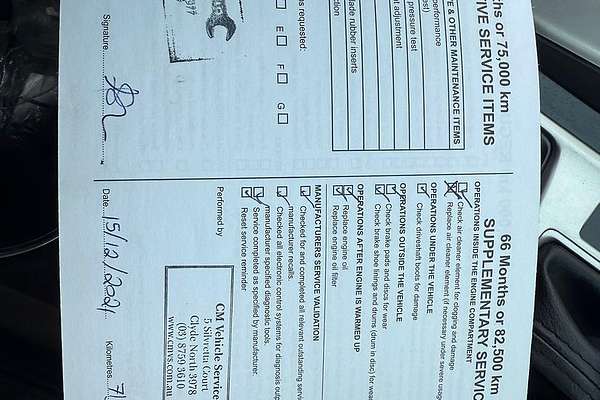 ths or 75,000 km
TIVE SERVICE ITEMS
E & OTHER MAINTENANCE ITEMS
performance
ost)
pressure test
nt adjustment
lade rubber inserts
ction
s requested:
E
F
G
Signature
66 Months or 82,500 km
SUPPLEMENTARY SERVIC
OPERATIONS INSIDE THE ENGINE COMPARTMENT
Check air cleaner element for clogging and damage
Replace air cleaner element (if necessary under severe usage
OPERATIONS UNDER THE VEHICLE
Check driveshaft boots for damage
OPERATIONS OUTSIDE THE VEHICLE
Check brake pads and discs for wear
Check brake shoe linings and drums (drum in disc) for wear
OPERATIONS AFTER ENGINE IS WARMED UP
Replace engine oil
Replace engine oil filter
MANUFACTURERS SERVICE VALIDATION
Checked for and completed all relevant outstanding service
manufacturer recalls.
Checked all electronic control systems for diagnosis outp
manufacturer specified diagnostic tools.
Service completed as specified by manufacturer.
Reset service reminder
Performed by
CM Vehicle Service
5 Silvretta Court
Clyde North 3978
(03) 8759 3610
www.cmvs.com.au
Date 15/12/2021
Kilometres 7